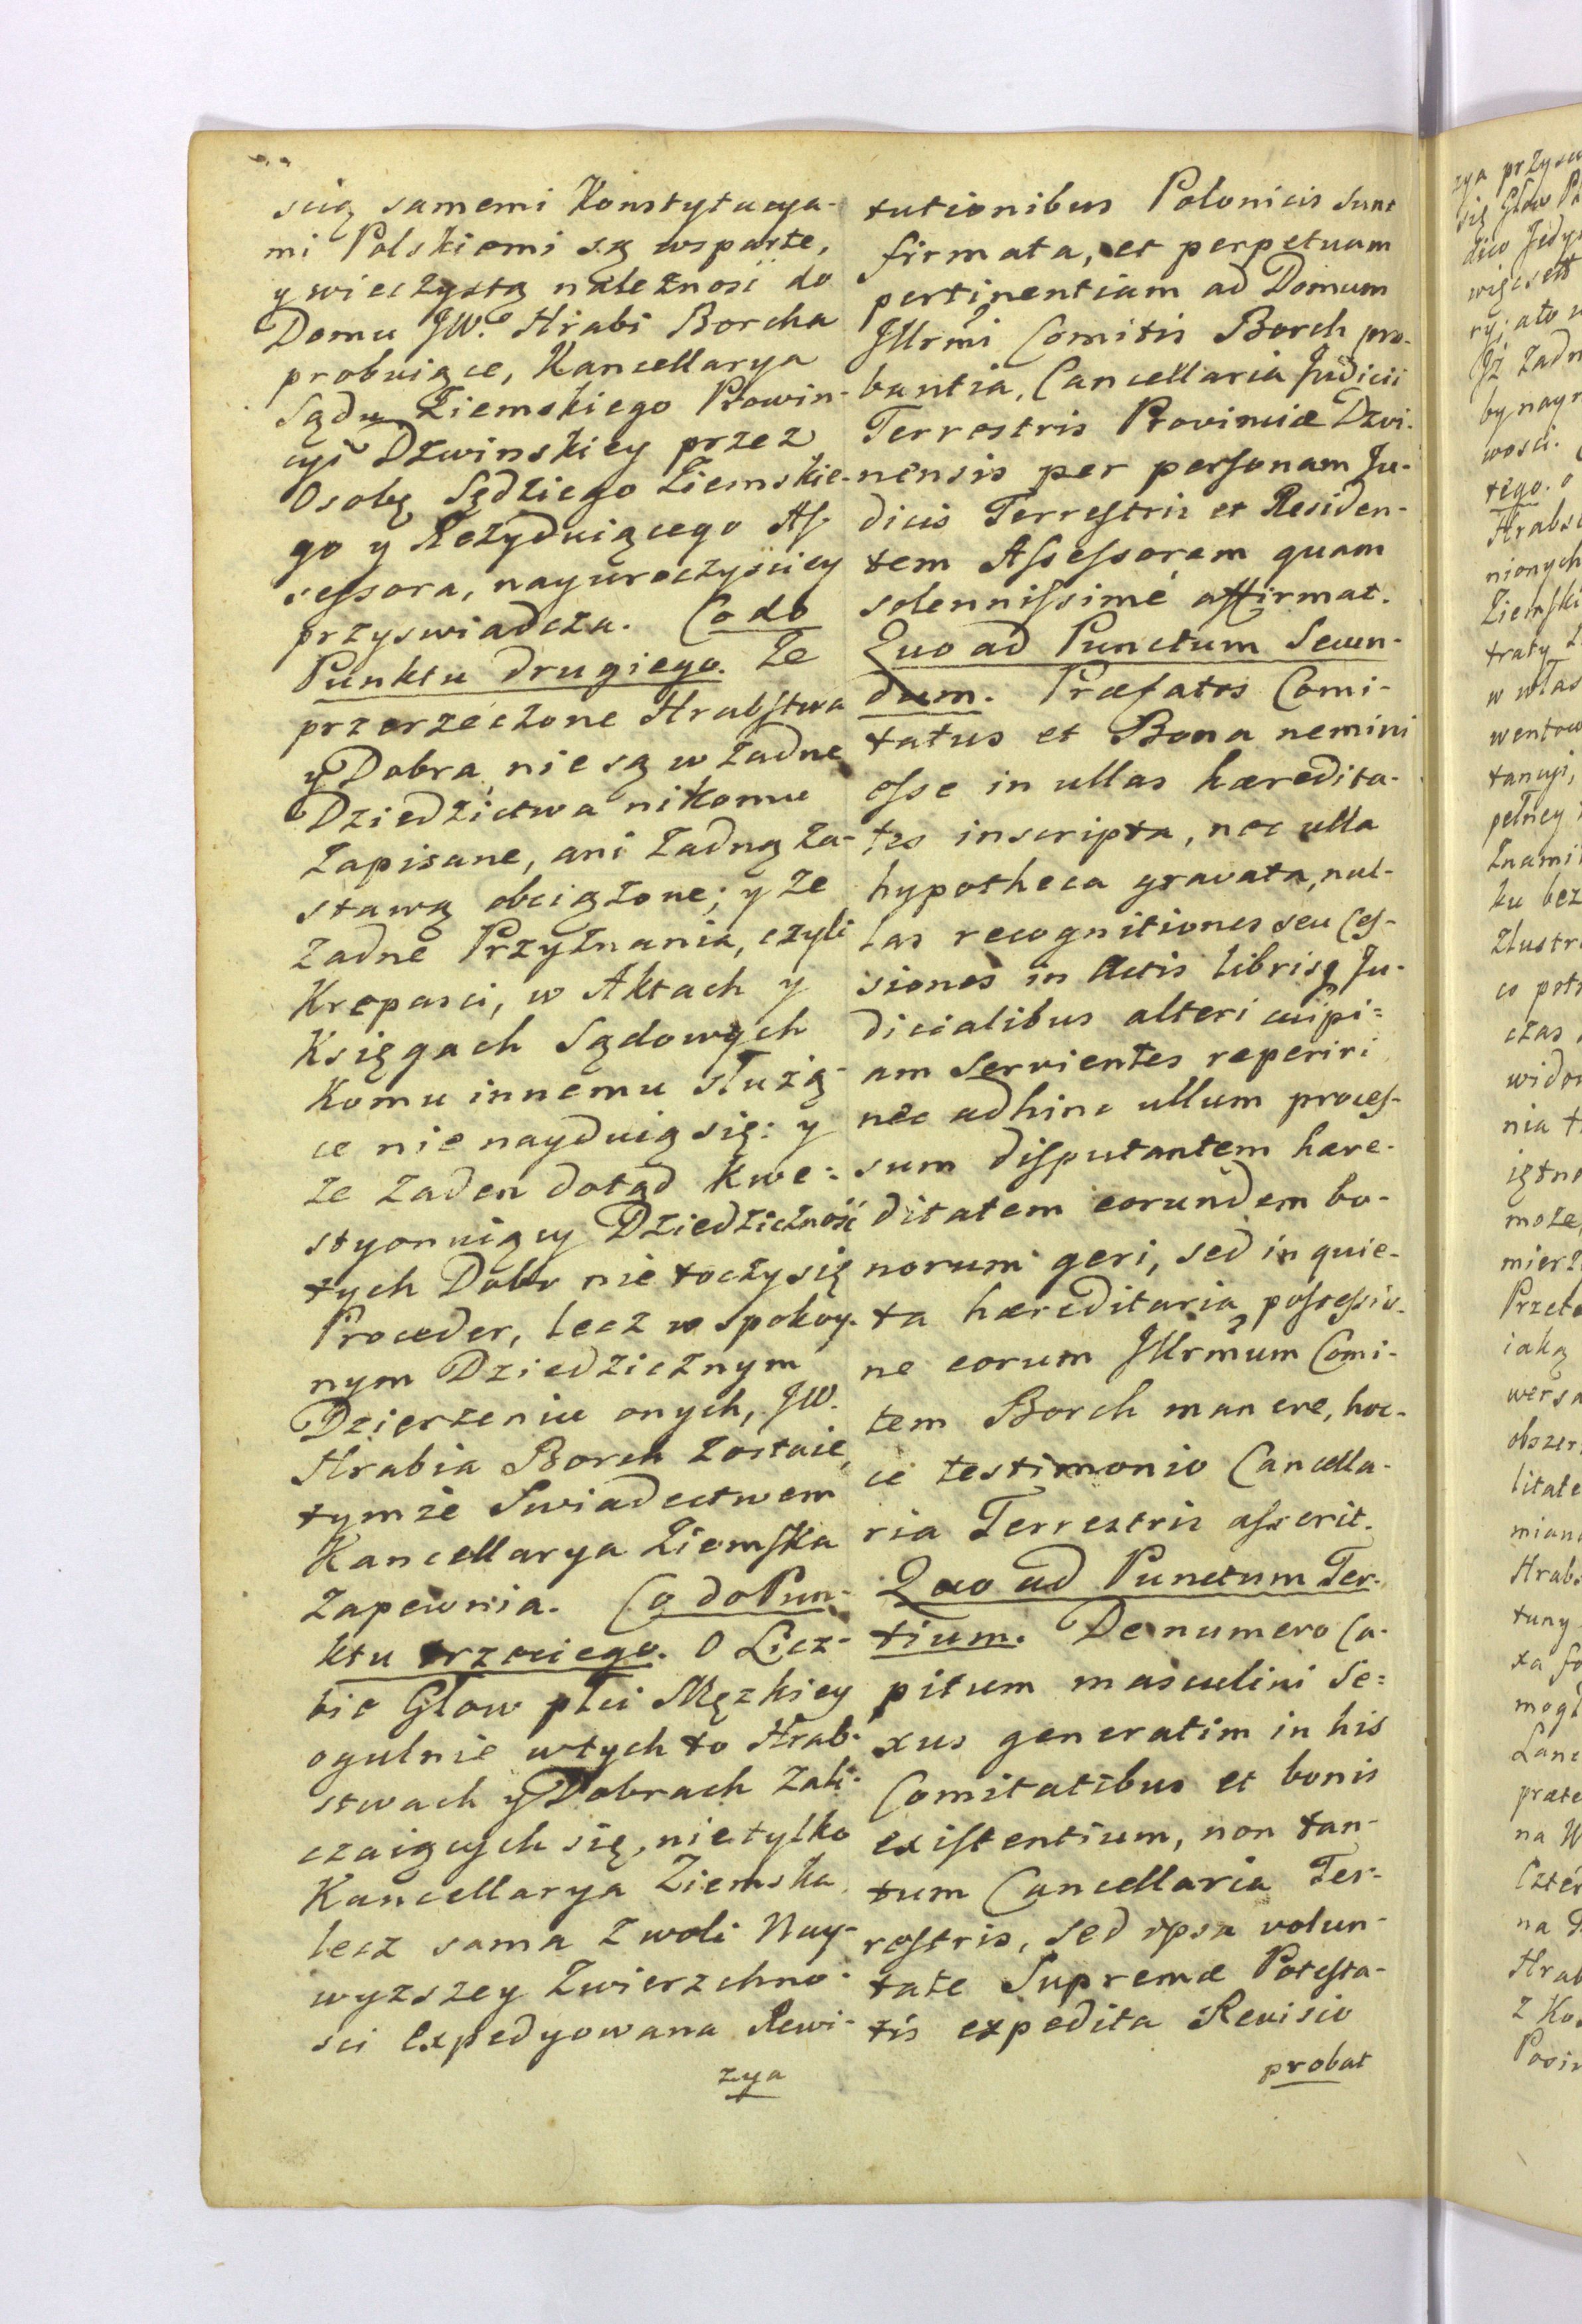 scią samemi Konstytucya-
mi Polskiemi są wsparte,
y wieczystą należnosć do
Domu JW. Hrabi Borcha
probuiące, Kancellarya
Sądu Ziemskiego Prowin-
cyi Dzwinskiey przez
Osobę Sędziego Ziemskie-
go y Rezyduiącego As-
sessora, nayuroczysciey
przyswiadcza. Co do
Punktu drugiego. Ze
przerzeczone Hrabstwa
y Dobra nie są w zadne
Dziedzictwa nikomu
zapisane, ani zadną za-
stawą obciązone; y ze
zadne Przyznania, czyli
Kreposci, w Aktach y
Księgach Sądowych
Komu innemu słuzą-
ce nie nayduią się: y
ze zaden dotąd Kwe-
styonuiący Dziedzicznosć
tych Dobr nie toczy się
Proceder, lecz w spokoy-
nym Dziedzicznym
Dzierzeniu onych, JW.
Hrabia Borch zostaie,
tymze Swiadectwem
Kancellarya Ziemska
zapewnia. Co do Pun-
ktu trzeciego. O Licz-
bie Głow płci Męzkiey
ogulnie w tych to Hrab-
stwach y Dobrach zali-
czaiących się, nie tylko
Kancellarya Ziemska,
lecz sama z woli Nay-
wyzszey Zwierzchno-
sci Expedyowana Rewi-
zya
tutionibus Polonicis sunt
firmata, et perpetuam
pertinentiam ad Domum
Illrmi Comitis Borch pro-
bantia, Cancellaria Judicii
Terrestris Provinciæ Dzvi-
nensis per personam Ju-
dicis Terrestris et Residen-
tem Assessorem quam
solennissimé affirmat.
Quo ad Punctum Secun-
dum. Præfatos Comi-
tatus et Bona nemini
esse in ullas hæredita-
tes inscripta, nec ulla
hypotheca gravata, nul-
las recognitiones seu Ces-
siones in Actis librisq Ju-
dicialibus alteri cuipi-
am servientes reperiri
nec adhinc ullum proces-
sum disputantem hære-
ditatem eorundem bo-
norum geri, sed in quie-
ta hæreditaria possessio-
ne eorum Illrmum Comi-
tem Borch manere, hoc-
ce testimonio Cancella-
ria Terrestris asserit.
Quo ad Punctum Ter-
tium. De numero Ca-
pitum masculini Se-
xus generatim in his
Comitatibus et bonis
existentium, non tan-
tum Cancellaria Ter-
restris, sed ipsa volun-
tate Supremæ Potesta-
tis expedita Revisio
probat